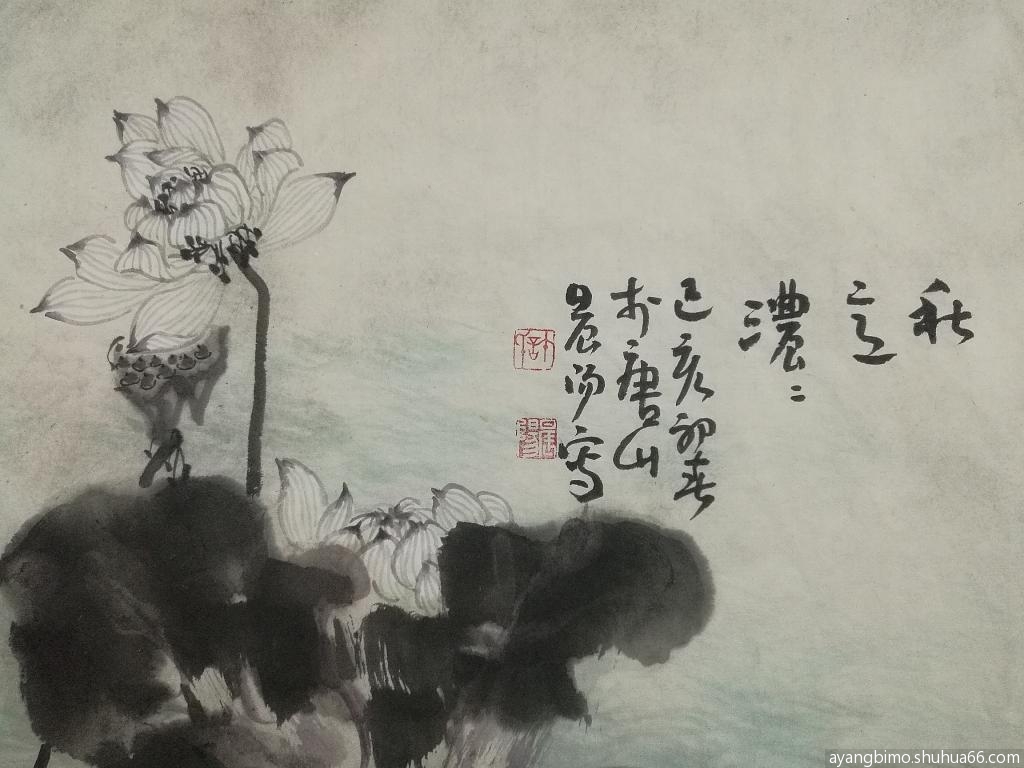 秋意濃濃
己亥初春
於唐山
晨陽寫
ayangbimo.shuhua66.com